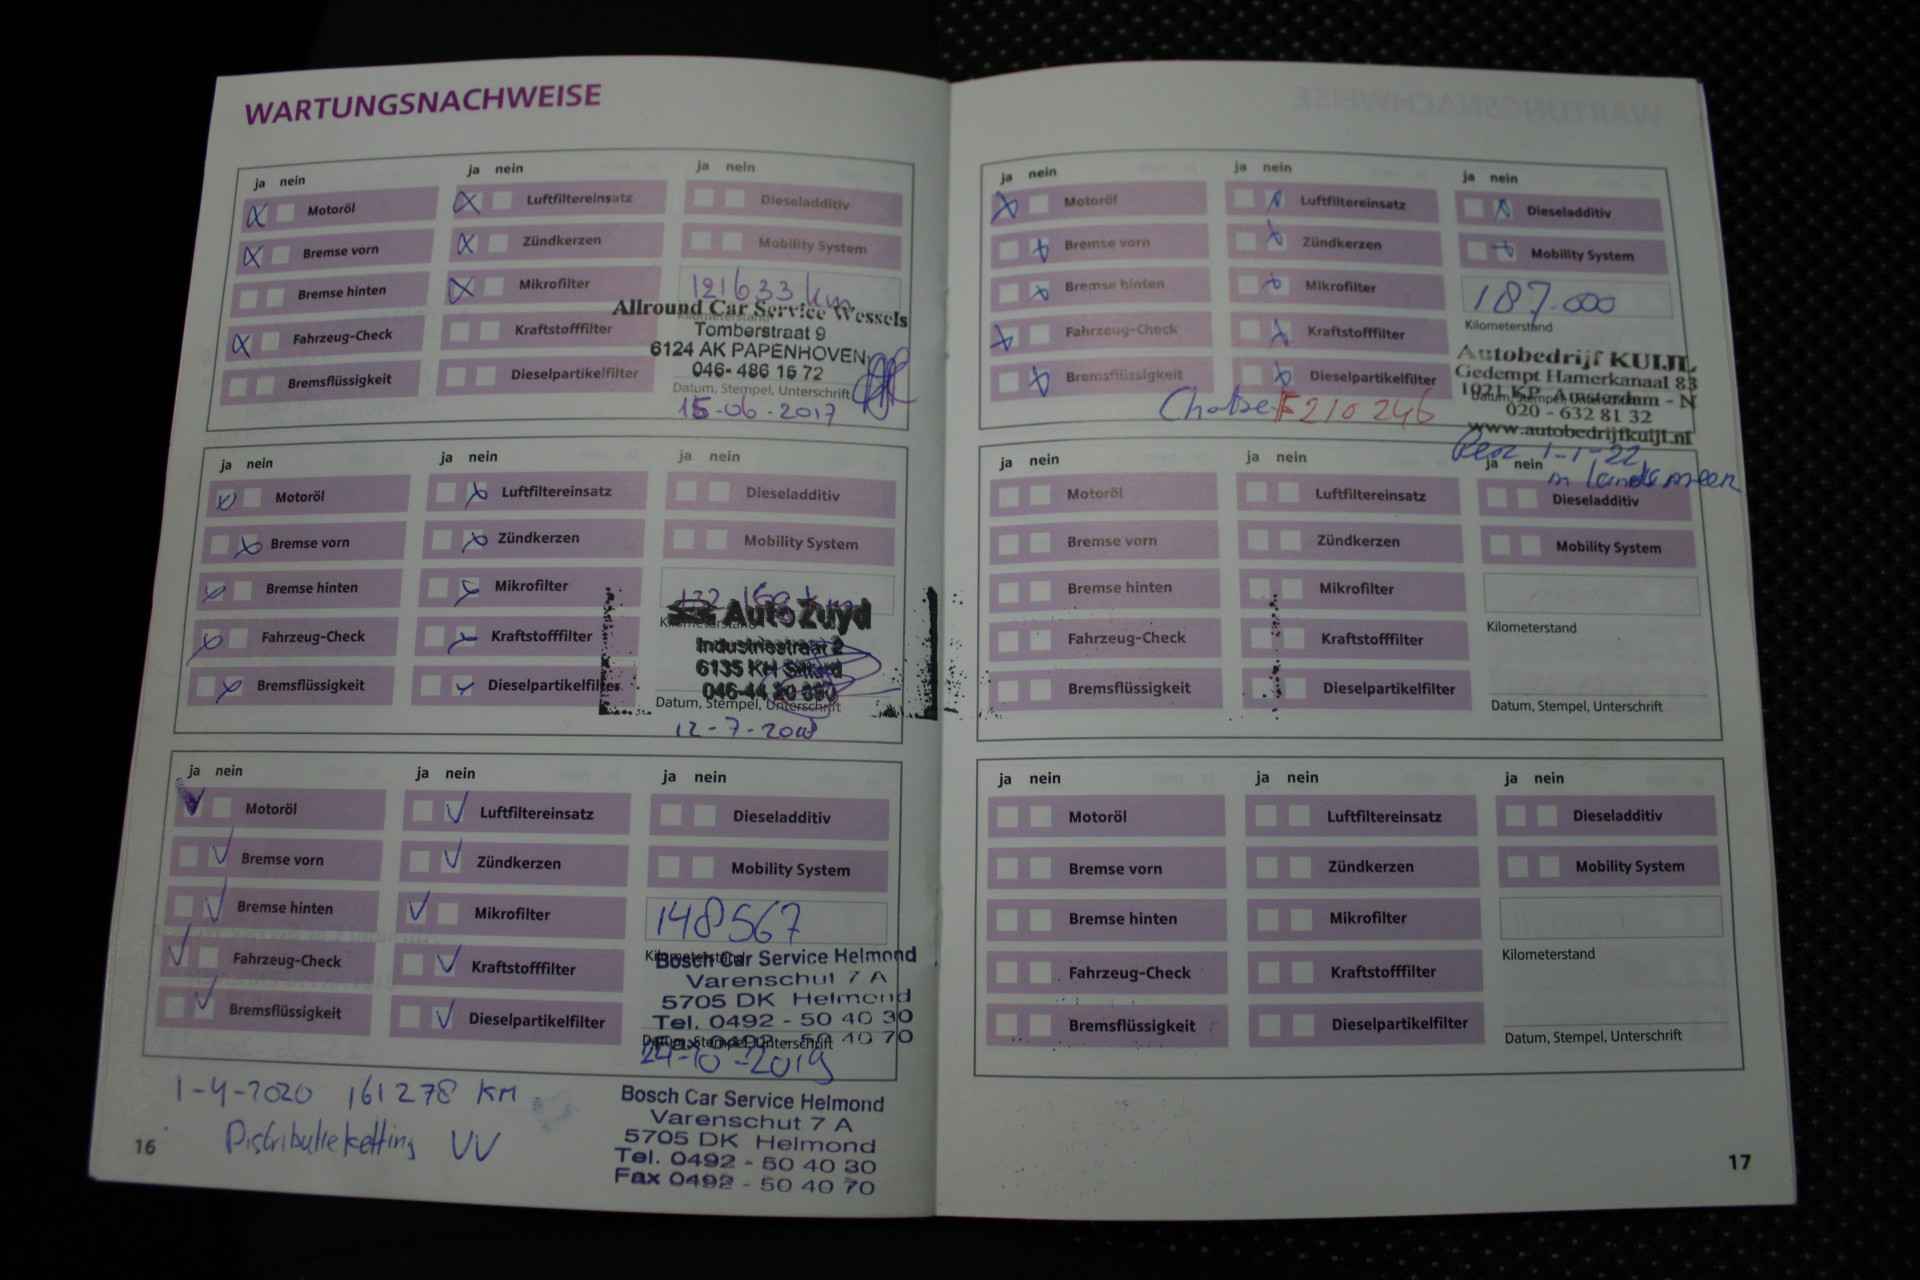 WARTUNGSNACHWEISE
ja nein
Motoröl
Bremse vorn
Bremse hinten
Fahrzeug-Check
Bremsflüssigkeit
ja nein
Luftfiltereinsatz
Zündkerzen
Mikrofilter
Kraftstofffilter
Dieselpartikelfilter
ja nein
Dieseladditiv
Mobility System
121633 km
Kilometerstand
Allround Car Service Wessels
Tomberstraat 9
6124 AK PAPENHOVEN
046- 486 16 72
Datum, Stempel, Unterschrift
15-06-2017
ja nein
Motoröl
Bremse vorn
Bremse hinten
Fahrzeug-Check
Bremsflüssigkeit
ja nein
Luftfiltereinsatz
Zündkerzen
Mikrofilter
Kraftstofffilter
Dieselpartikelfilter
ja nein
Dieseladditiv
Mobility System
Kilometerstand
AutoZuyd
Industriestraat 2
6135 KH Sittard
Datum, Stempel, Unterschrift
12-7-2018
ja nein
Motoröl
Bremse vorn
Bremse hinten
Fahrzeug-Check
Bremsflüssigkeit
ja nein
Luftfiltereinsatz
Zündkerzen
Mikrofilter
Kraftstofffilter
Dieselpartikelfilter
ja nein
Dieseladditiv
Mobility System
148567
Kilometerstand
Bosch Car Service Helmond
Varenschut 7 A
5705 DK Helmond
Tel. 0492 - 50 40 30
Fax 0492 - 50 40 70
Datum, Stempel, Unterschrift
24-10-2019
1-4-2020 161278 KM
Distributieketting VV
Bosch Car Service Helmond
Varenschut 7 A
5705 DK Helmond
Tel. 0492 - 50 40 30
Fax 0492 - 50 40 70
16
ja nein
Motoröl
Bremse vorn
Bremse hinten
Fahrzeug-Check
Bremsflüssigkeit
ja nein
Luftfiltereinsatz
Zündkerzen
Mikrofilter
Kraftstofffilter
Dieselpartikelfilter
ja nein
Dieseladditiv
Mobility System
187.000
Kilometerstand
Autobedrijf KUIJL
Gedempt Hamerkanaal 83
1021 KP Amsterdam - N
020 - 632 81 32
www.autobedrijfkuijl.nl
Datum, Stempel, Unterschrift
210246
1-1-22
ja nein
Motoröl
Bremse vorn
Bremse hinten
Fahrzeug-Check
Bremsflüssigkeit
ja nein
Luftfiltereinsatz
Zündkerzen
Mikrofilter
Kraftstofffilter
Dieselpartikelfilter
ja nein
Dieseladditiv
Mobility System
Kilometerstand
Datum, Stempel, Unterschrift
ja nein
Motoröl
Bremse vorn
Bremse hinten
Fahrzeug-Check
Bremsflüssigkeit
ja nein
Luftfiltereinsatz
Zündkerzen
Mikrofilter
Kraftstofffilter
Dieselpartikelfilter
ja nein
Dieseladditiv
Mobility System
Kilometerstand
Datum, Stempel, Unterschrift
17